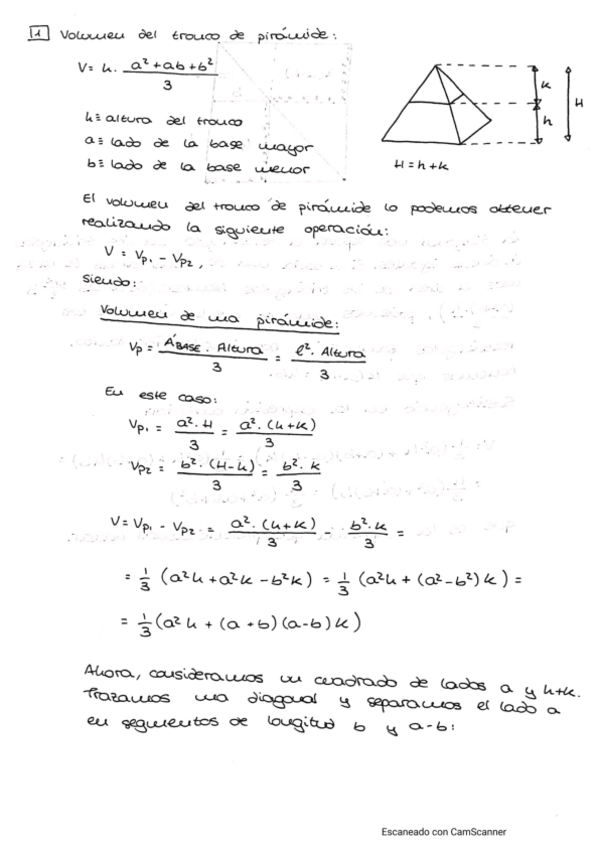 1 Volumen del tronco de pirámide:
V = h · a² + ab + b² / 3
k
h
H
h ≡ altura del tronco
a ≡ lado de la base mayor
b ≡ lado de la base menor
H = h + k
El volumen del tronco de pirámide lo podemos obtener
realizando la siguiente operación:
V = Vp₁ - Vp₂,
siendo:
Volumen de una pirámide:
Vp = ÁBASE · Altura / 3 = l² · Altura / 3
En este caso:
Vp₁ = a² · H / 3 = a² · (h+k) / 3
Vp₂ = b² · (H-h) / 3 = b² · k / 3
V = Vp₁ - Vp₂ = a² · (h+k) / 3 - b² · k / 3 =
= 1/3 (a²h + a²k - b²k) = 1/3 (a²h + (a² - b²) k) =
= 1/3 (a²h + (a+b) (a-b) k)
Ahora, consideramos un cuadrado de lados a y h+k.
Trazamos una diagonal y separamos el lado a
en segmentos de longitud b y a-b:
Escaneado con CamScanner